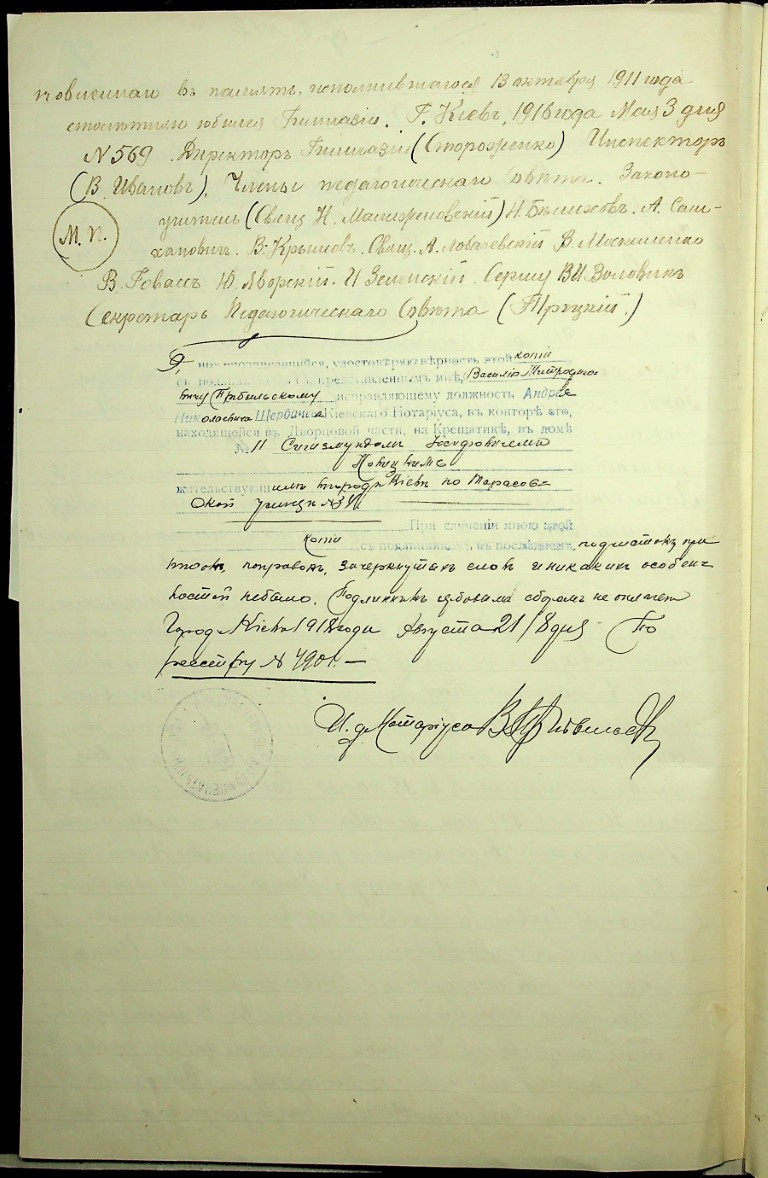 новленнаго въ память исполнившагося 13 октября 1911 года
столѣтняго юбилея Гимназіи. Г. Кіевъ, 1916 года Мая 3 дня
№ 569. Директоръ Гимназіи (Стороженко) Инспекторъ
(В. Ивановъ), Члены педагогическаго Совѣта. Законо-
учитель (Свящ. Н.
М. П.
В. Крымовъ. Свящ. А. В.
В. Ю. Яворскій. И. Сергій В. И.
Секретарь Педагогическаго Совѣта (Троцкій.)
Я, нижеподписавшійся, удостовѣряю вѣрность этой копіи
съ подлинникомъ ея, представленнымъ мнѣ, Василію Митрофано
вичу исправляющему должность Андрея
Николаевича Щербича Кіевскаго Нотаріуса, въ конторѣ его,
находящейся въ Дворцовой части, на Крещатикѣ, въ домѣ
№ 11 Сигизмундомъ
жительствующимъ въ городѣ Кіевѣ по Тарасов-
ской улицѣ №
При сличеніи мною этой
копіи съ подлинникомъ, въ послѣднемъ, подчистокъ, при
писокъ, поправокъ, зачеркнутыхъ словъ и никакихъ особен
ностей небыло. Подлинникъ гербовымъ сборомъ не оплаченъ
Городъ Кіевъ 1918 года Августа 21/8 дня По
реестру № 4901. —
И. д. Нотаріуса